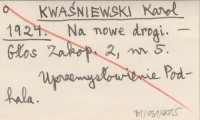 o
KWAŚNIEWSKI Karol
1924. Na nowe drogi. —
Głos Zakop. 2, nr 5.
Uprzemysłowienie Pod-
hala.